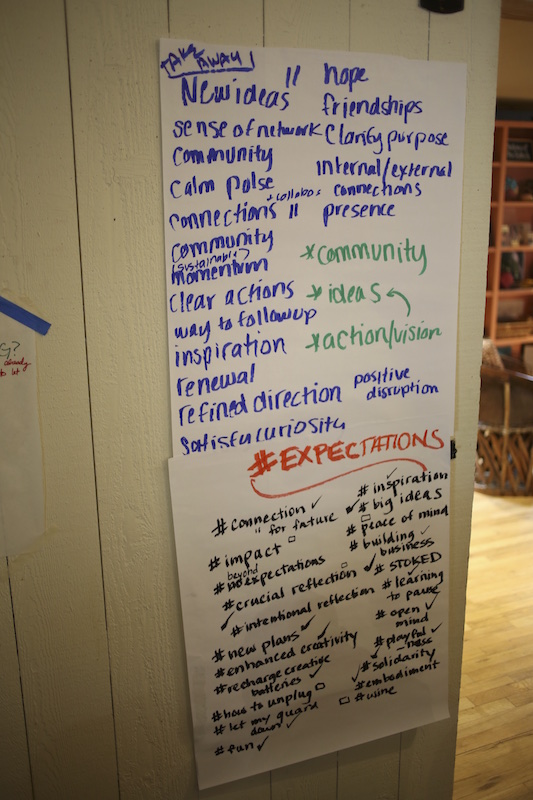 TAKE AWAY!
New ideas "
sense of network
community
calm polse
connections "
+ collabos
community
(sustainable)
momentum
clear actions
way to followup
inspiration
renewal
refined direction
satisfy curiosity
hope
friendships
Clarify purpose
internal/external
connections
presence
*community
*ideas
*action/vision
positive
disruption
#EXPECTATIONS
#connection ✓
" for future ✓
#impact □
beyond
#no expectations
#crucial reflection ✓
#intentional reflection
#new plans ✓
#enhanced creativity
#recharge creative
batteries ✓
#how to unplug □
#let my guard
down ✓
#fun ✓
#inspiration
#big ideas
#peace of mind
#building ✓
business
#STOKED
#learning
to pause
#open ✓
mind
#playful ✓
-ness
#solidarity
#embodiment
G?
already
to let